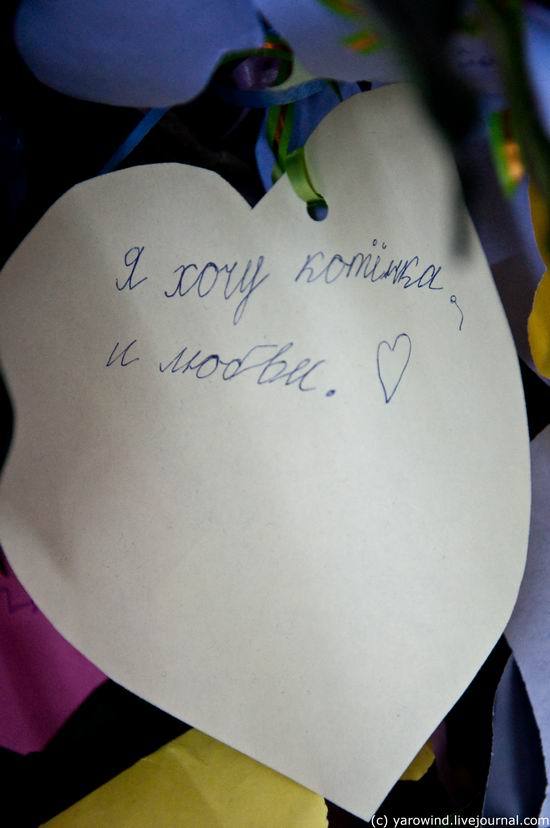 Я хочу котёнка,
и любви. ♡
(c) yarowind.livejournal.com